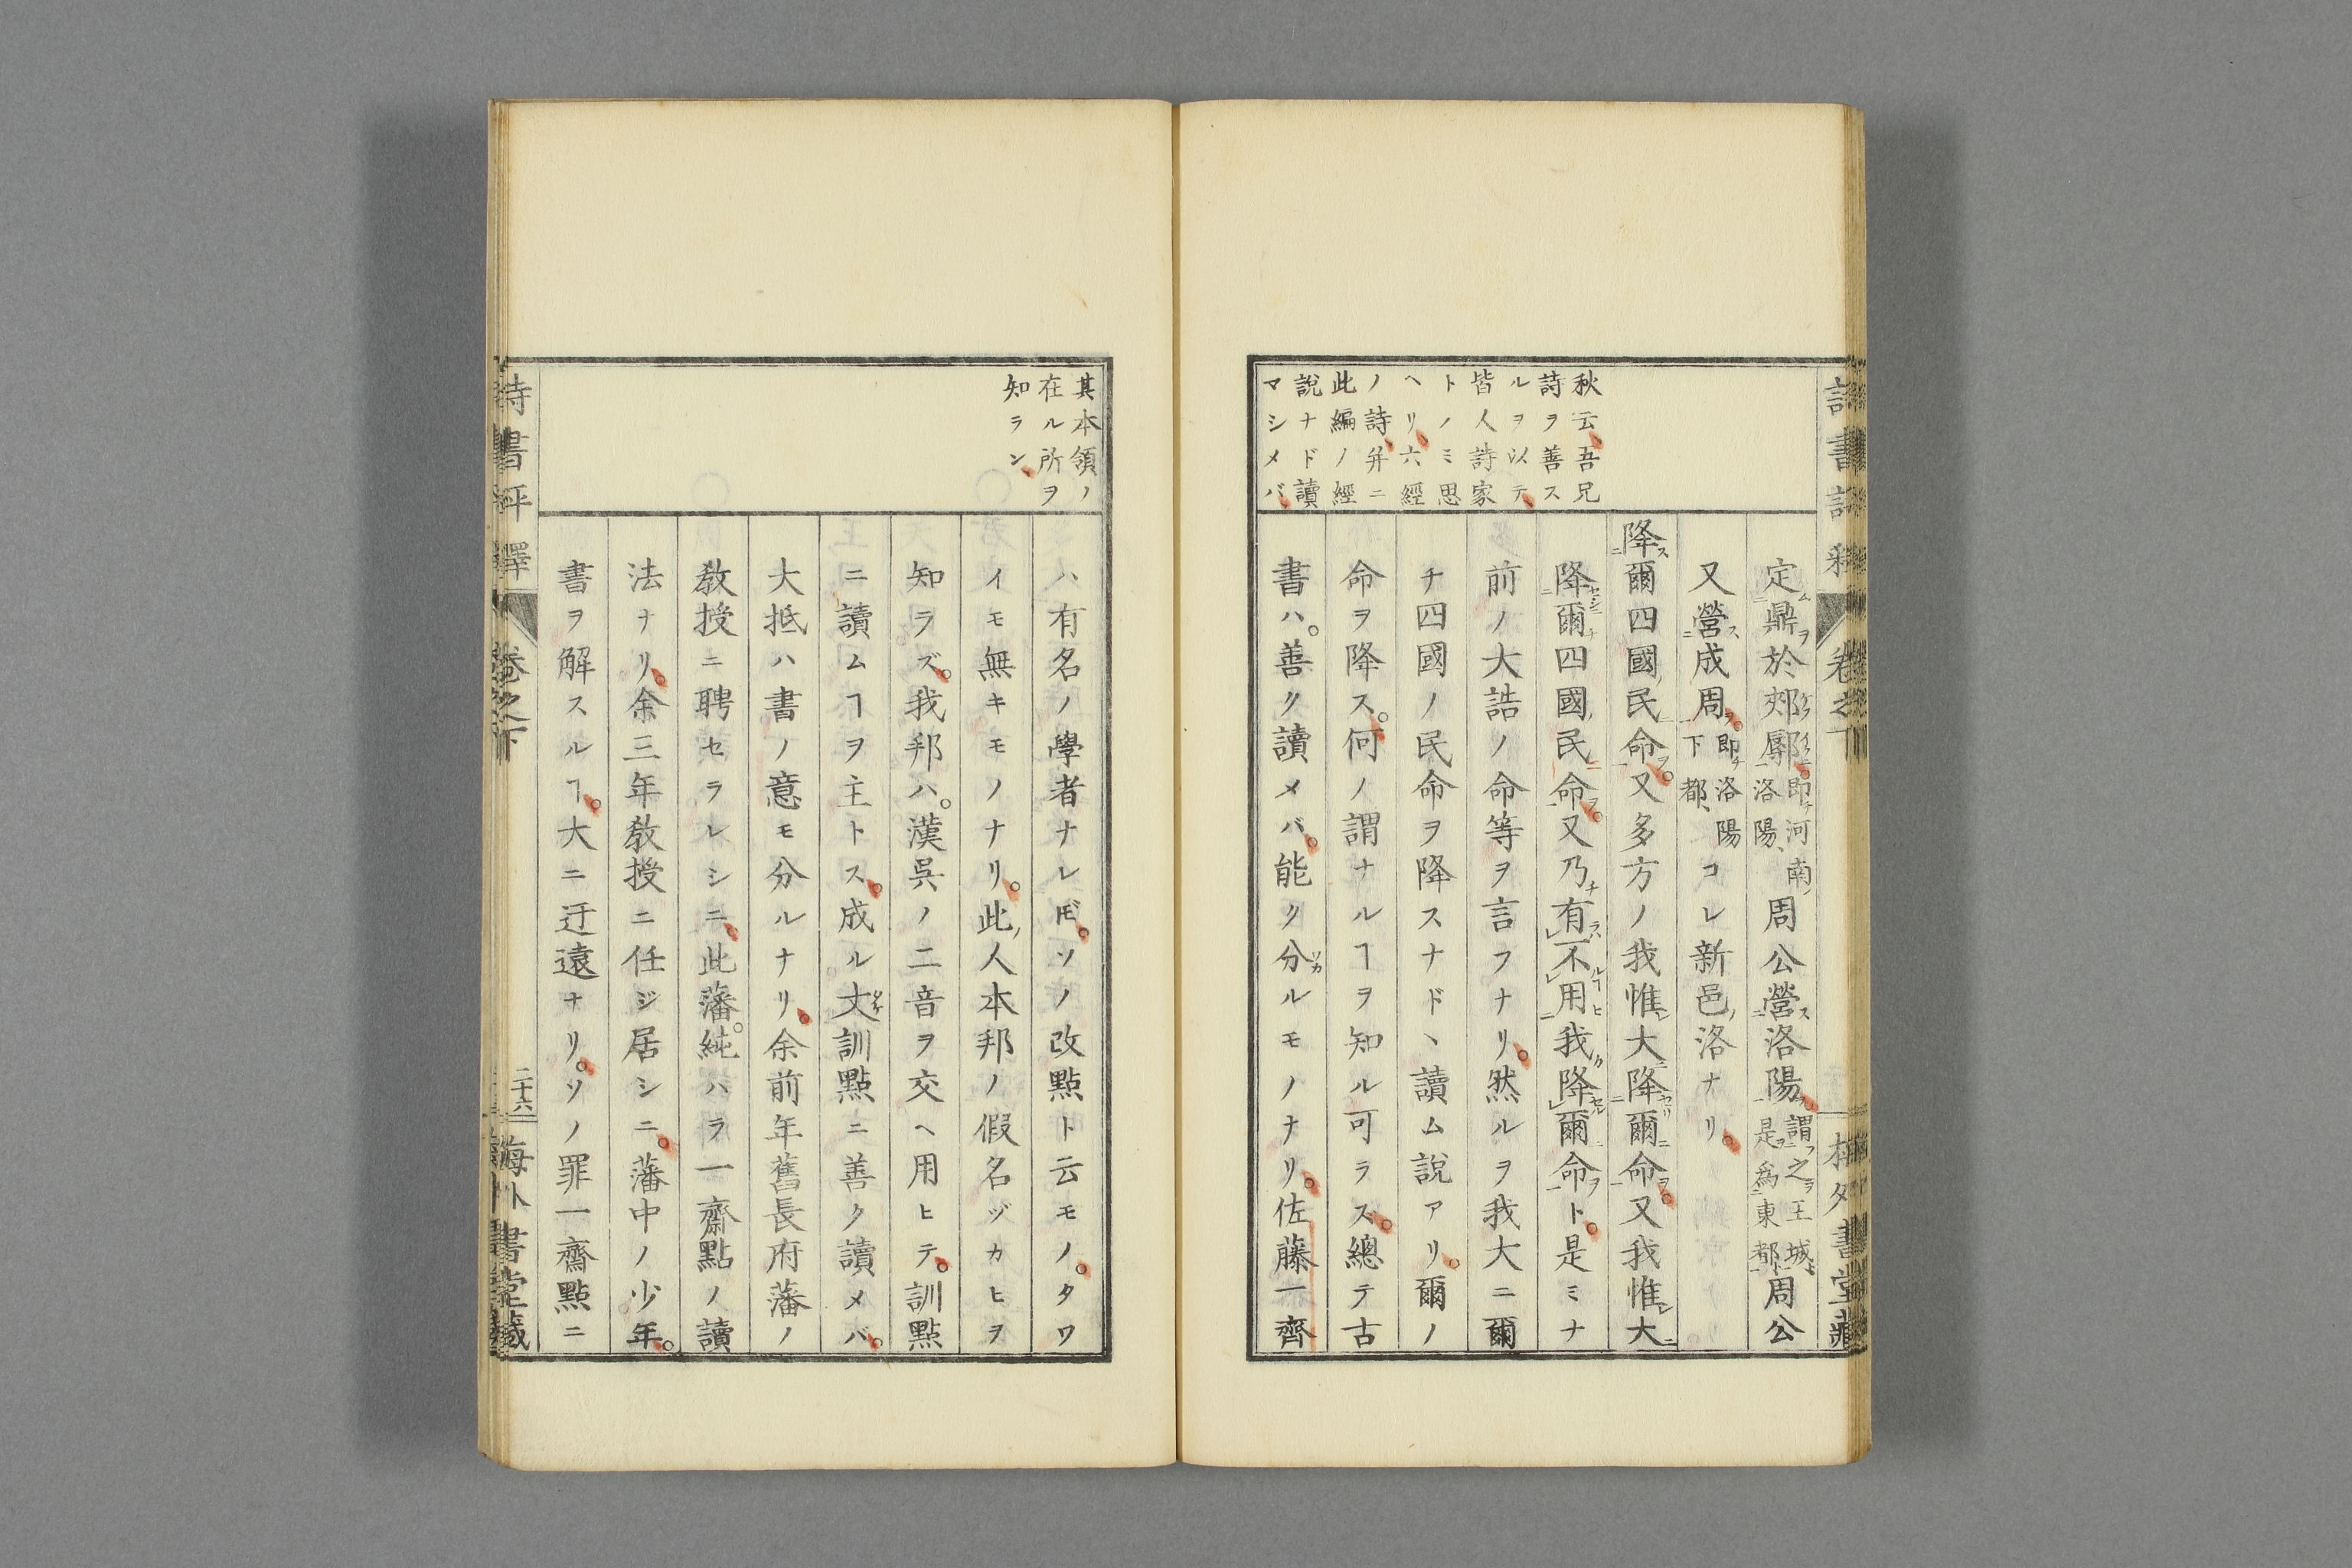 秋云吾兄
詩ヲ善ス
ルヲ以テ
皆人詩家
トノミ思
ヘリ六經
ノ詩并ニ
此編ノ經
說ナド讀
マシメバ
定ム二鼎ヲ於郟鄏ニ一即チ河南ノ洛陽、周公營ス二洛陽ヲ一謂フ二之ヲ王城ト一是ヲ爲ス二東都ト一周公
又營ス二成周ヲ一。即チ洛陽下都、コレ新邑ノ洛ナリ。
降ス二爾四國ノ民命ヲ一。又多方ノ我惟レ大ニ降セリ二爾ニ命ヲ一。又我惟レ大ニ
降セシニ二爾チ四國ノ民ニ命ヲ一。又乃チ有ラバレ不ルヿレ用ヒ二我カ降セルレ爾ニ命ヲ一ト。是ミナ
前ノ大誥ノ命等ヲ言フナリ。然ルヲ我大ニ爾
チ四國ノ民命ヲ降スナド、讀ム說アリ。爾ノ
命ヲ降ス。何ノ謂ナルヿヲ知ル可ラズ。總テ古
書ハ。善ク讀メバ。能ク分ルモノナリ。佐藤一齊
詩書評釋 卷之下 二十六 梅外書堂藏
其本領ノ
在ル所ヲ
知ラン
ハ有名ノ學者ナレ𪜈。ソノ改點ト云モノ。タワ
イモ無キモノナリ。此ノ人本邦ノ假名ヅカヒヲ
知ラズ。我邦ハ。漢吳ノ二音ヲ交ヘ用ヒテ。訓點
ニ讀ムヿヲ主トス。成ル丈ダケ訓點ニ善ク讀メバ。
大抵ハ書ノ意モ分ルナリ。余前年舊長府藩ノ
敎授ニ聘セラレシニ。此藩。純ハラ一齋點ノ讀
法ナリ。余三年敎授ニ任ジ居シニ。藩中ノ少年。
書ヲ解スルヿ。大ニ迂遠ナリ。ソノ罪一齋點ニ